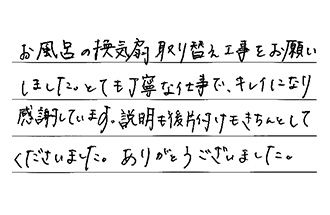 お風呂の換気扇取り替え工事をお願い
しました。とても丁寧な仕事で、キレイになり
感謝しています。説明も後片付けもきちんとして
くださいました。ありがとうございました。